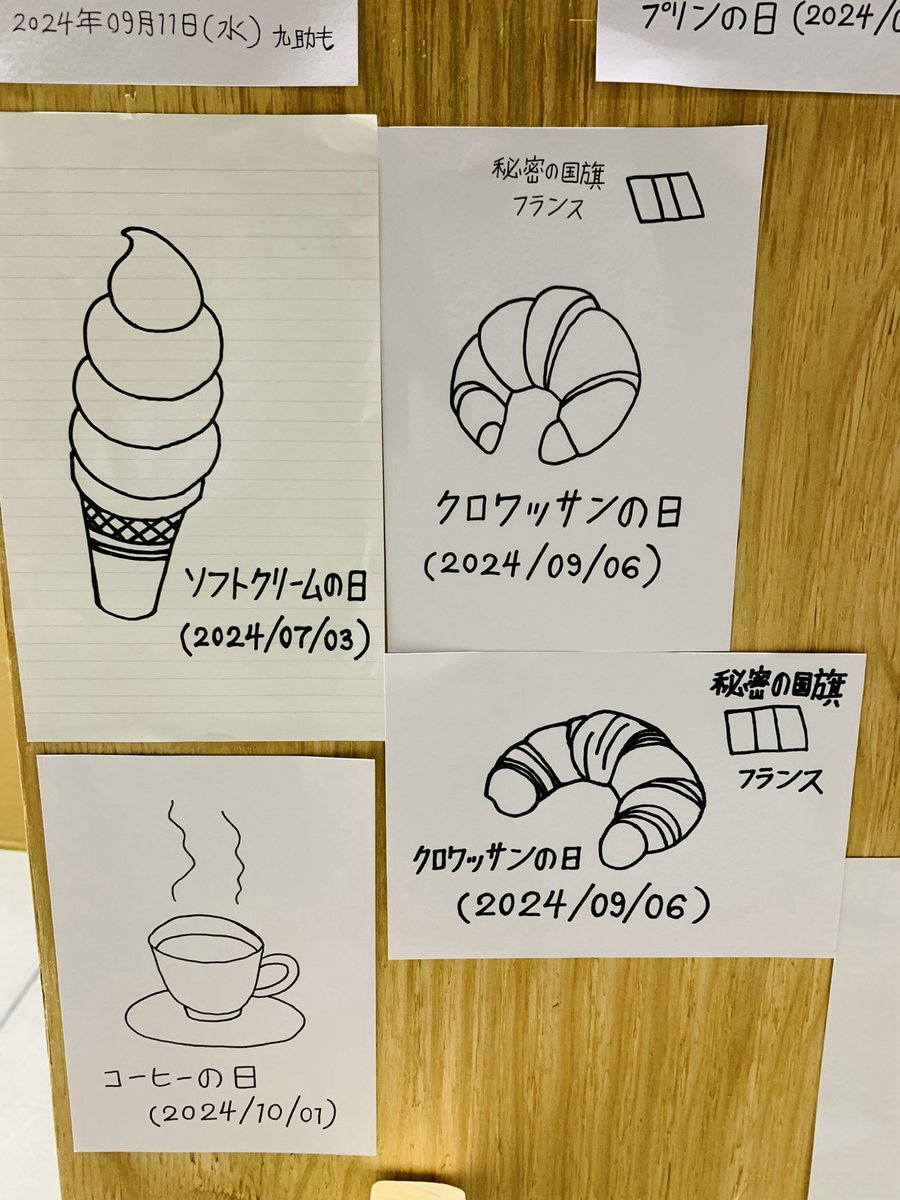 2024年09月11日(水) 九助も
プリンの日 (2024/0
ソフトクリームの日
(2024/07/03)
秘密の国旗
フランス
クロワッサンの日
(2024/09/06)
秘密の国旗
フランス
クロワッサンの日
(2024/09/06)
コーヒーの日
(2024/10/01)